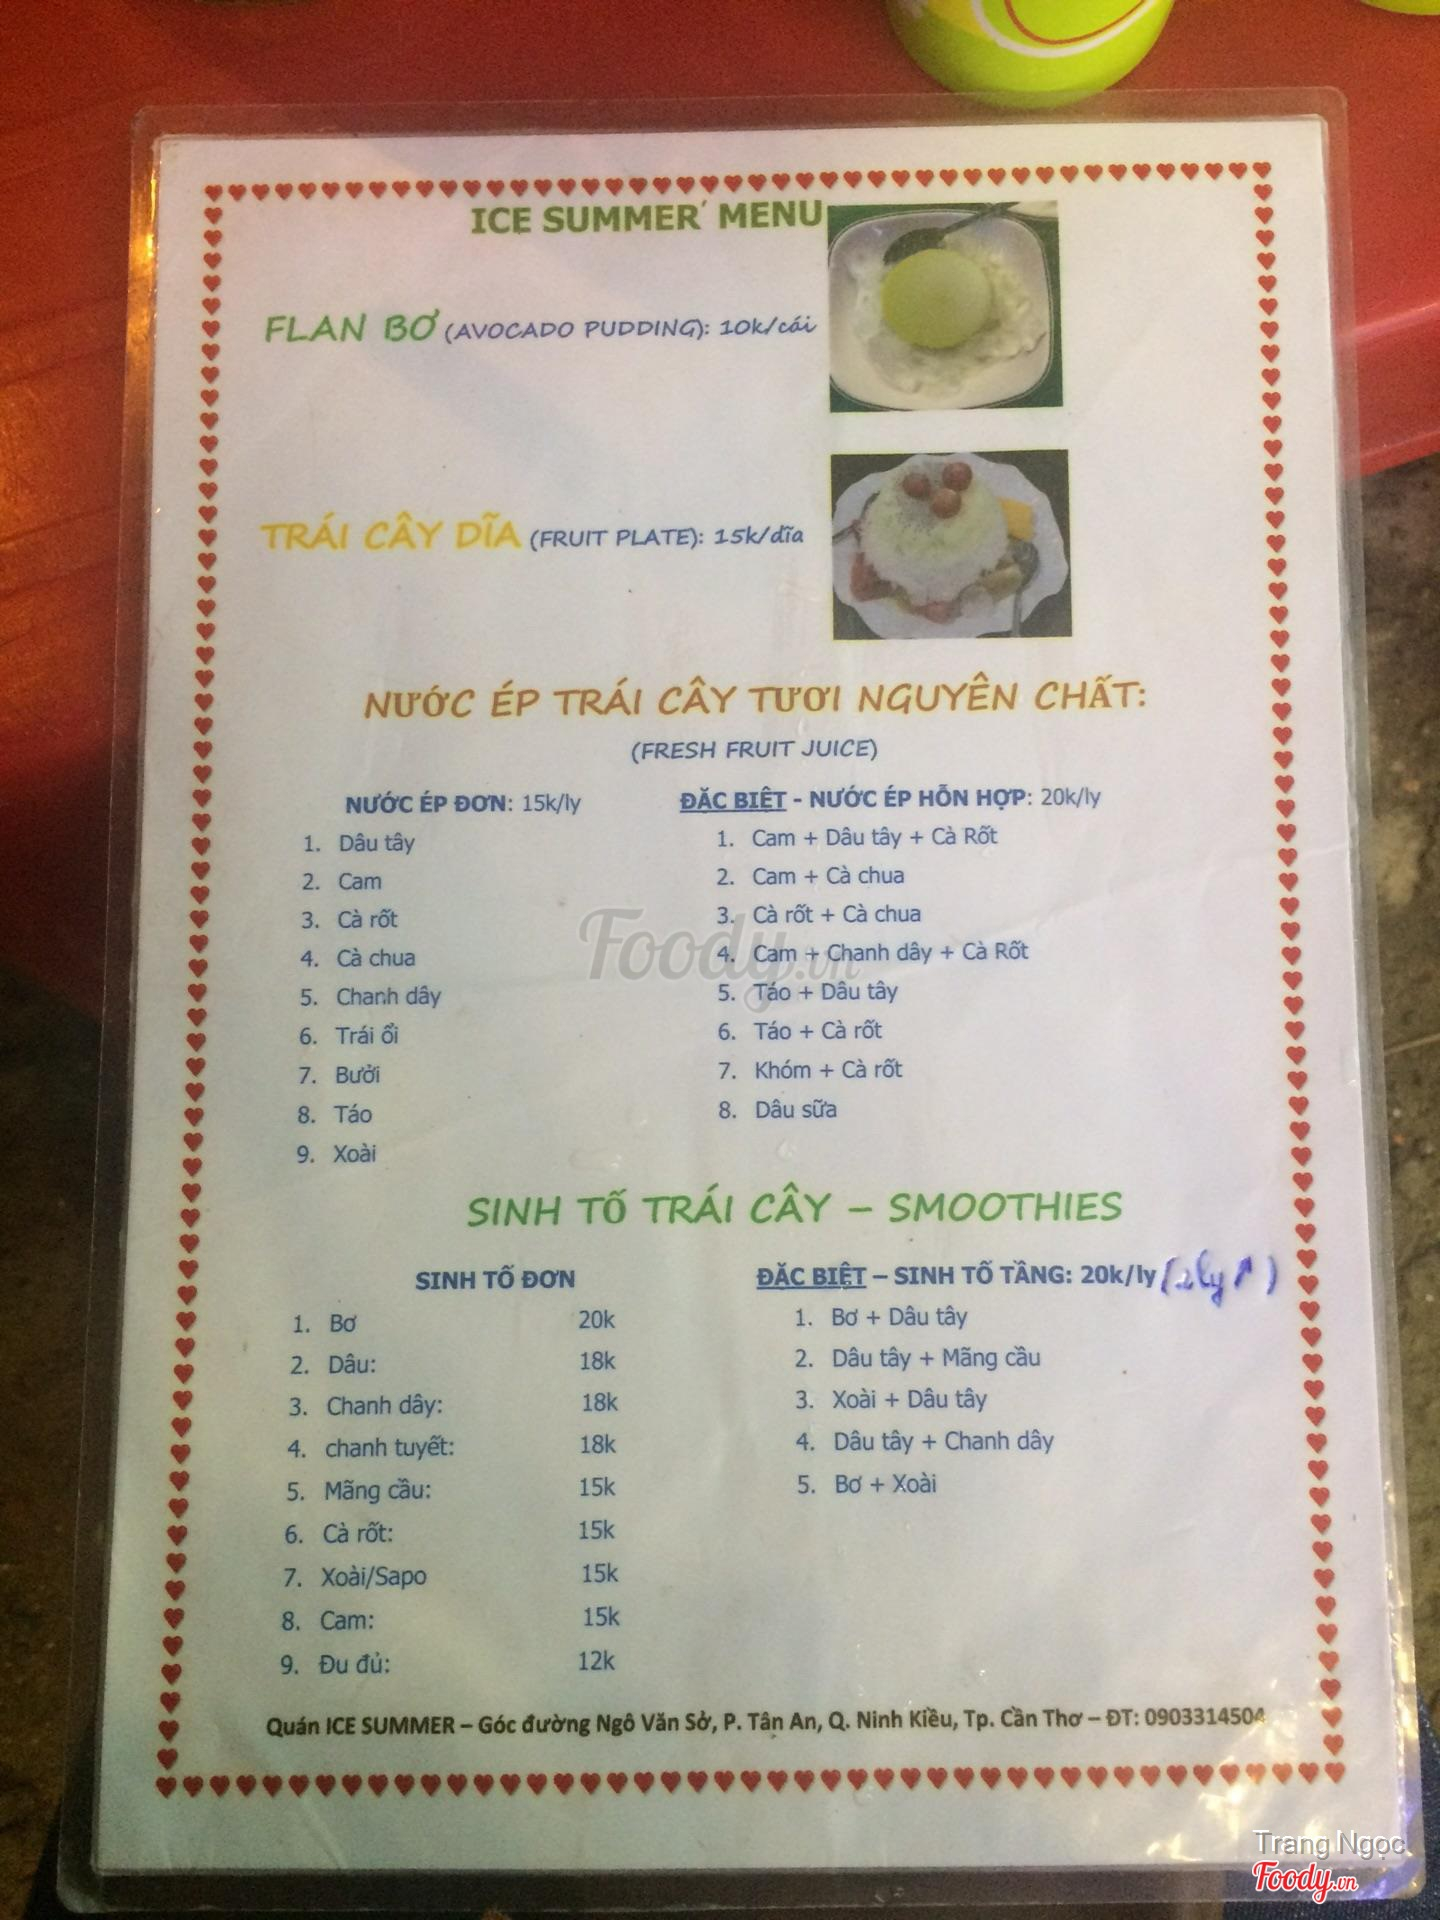 ICE SUMMER' MENU
FLAN BƠ (AVOCADO PUDDING): 10k/cái
TRÁI CÂY DĨA (FRUIT PLATE): 15k/dĩa
NƯỚC ÉP TRÁI CÂY TƯƠI NGUYÊN CHẤT:
(FRESH FRUIT JUICE)
NƯỚC ÉP ĐƠN: 15k/ly
1. Dâu tây
2. Cam
3. Cà rốt
4. Cà chua
5. Chanh dây
6. Trái ổi
7. Bưởi
8. Táo
9. Xoài
ĐẶC BIỆT - NƯỚC ÉP HỖN HỢP: 20k/ly
1. Cam + Dâu tây + Cà Rốt
2. Cam + Cà chua
3. Cà rốt + Cà chua
4. Cam + Chanh dây + Cà Rốt
5. Táo + Dâu tây
6. Táo + Cà rốt
7. Khóm + Cà rốt
8. Dâu sữa
Foody.vn
SINH TỐ TRÁI CÂY – SMOOTHIES
SINH TỐ ĐƠN
1. Bơ 20k
2. Dâu: 18k
3. Chanh dây: 18k
4. chanh tuyết: 18k
5. Mãng cầu: 15k
6. Cà rốt: 15k
7. Xoài/Sapo 15k
8. Cam: 15k
9. Đu đủ: 12k
ĐẶC BIỆT – SINH TỐ TẦNG: 20k/ly (2ly ↑)
1. Bơ + Dâu tây
2. Dâu tây + Mãng cầu
3. Xoài + Dâu tây
4. Dâu tây + Chanh dây
5. Bơ + Xoài
Quán ICE SUMMER – Góc đường Ngô Văn Sở, P. Tân An, Q. Ninh Kiều, Tp. Cần Thơ – ĐT: 0903314504
Trang Ngọc
Foody.vn